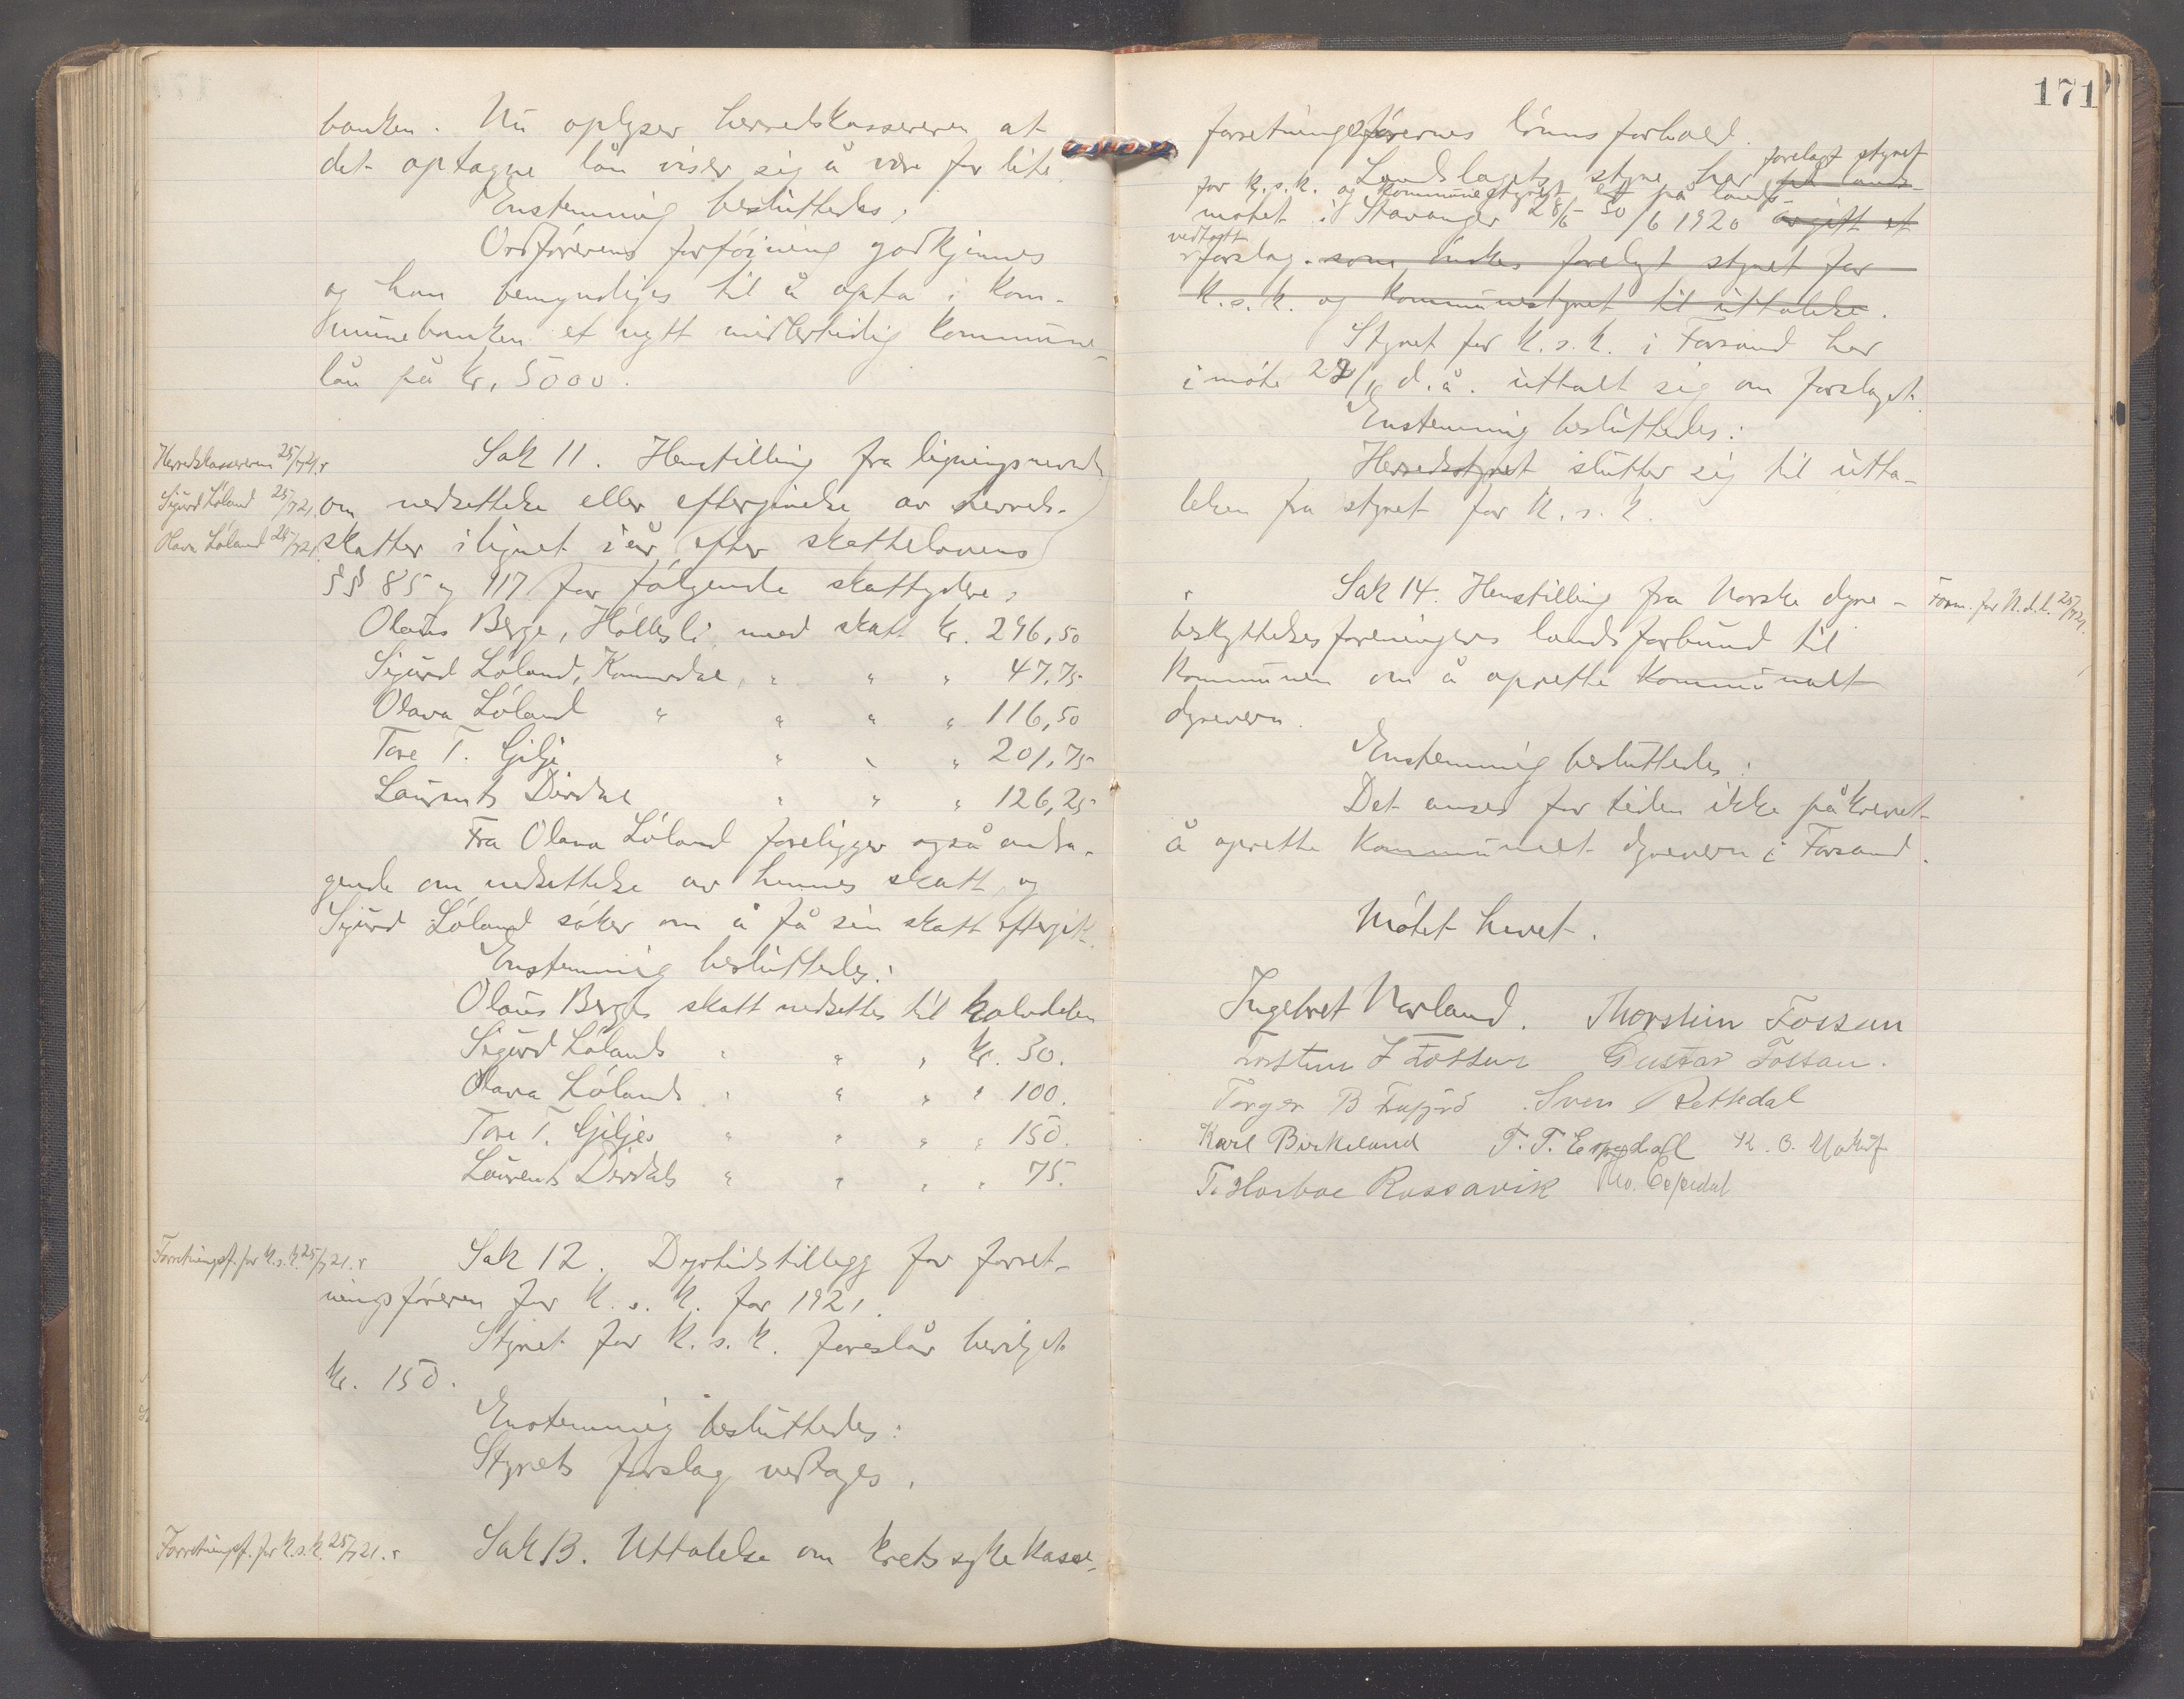 banken. Nu oplyser herredskassereren at
det optagne lån viser sig å være for lite.
Enstemmig besluttedes:
Ordførerens forføining godkjennes
og han bemyndiges til å opta i Kom-
munebanken et nytt midlertidig kommune-
lån på kr. 5000.
Herredskassereren 25/7 21. r
Sak 11. Henstilling fra ligningsnevnda
Sigurd Løland 25/7 21.
om nedsettelse eller eftergivelse av herreds-
Olava Løland 25/7 21.
skatter ilignet i år efter skattelovens
§§ 85 og 117 for følgende skattydere:
Olaus Berge, Høllesli med skatt kr. 296,50
Sigurd Løland, Kommedal, " " " 47,75
Olava Løland " " " " 116,50
Tore T. Gilje " " " 201,75
Laurents Dirdal " " " 126,25
Fra Olava Løland foreligger også andra-
gende om nedsettelse av hennes skatt, og
Sigurd Løland søker om å få sin skatt eftergit.
Enstemmig besluttedes:
Olaus Berges skatt nedsettes til halvdelen
Sigurd Lølands " " " kr. 30.
Olava Lølands " " " " 100.
Tore T. Giljes " " " " 150.
Laurents Dirdals " " " " 75.
Forretningsf. for k.s.k. 25/7 21. r
Sak 12. Dyrtidstillegg for forret-
ningsføreren for k.s.k. for 1921.
Styret for k.s.k. foreslår bevilget
kr. 150.
Enstemmig besluttedes:
Styrets forslag vedtages.
Forretningsf. for k.s.k. 25/7 21. r
Sak 13. Uttalelse om kretssykekasse-
171
forretningsførernes lønnsforhold.
Landslagets styre har forelagt styret
på lands-
for k.s.k. og kommunestyret et på lands-
møtet i Stavanger 28/6 - 30/6 1920 avgitt et
vedtatt
forslag. som ønskes forelagt styret for
k.s.k. og kommunestyret til uttalelse.
Styret for k.s.k. i Forsand har
i møte d.å. uttalt sig om forslaget.
Enstemmig besluttedes:
Herredsstyret slutter sig til utta-
lelsen fra styret for k.s.k.
Sak 14. Henstilling fra Norske dyre-
Form. for N.d.l. 25/7 21.
beskyttelsesforeningers landsforbund til
kommunen om å oprette kommunalt
dyrevern.
Enstemmig besluttedes:
Det anses for tiden ikke påkrevet
å oprette kommunalt dyrevern i Forsand.
Møtet hevet.
Ingebret Norland. Thorstein Fossan
Torstein T Fossan Gustav Fossan.
Torger B Frafjord Sven Rettedal
Karl Birkeland T. T. Espedal K. O.
T. Rossavik Espedal